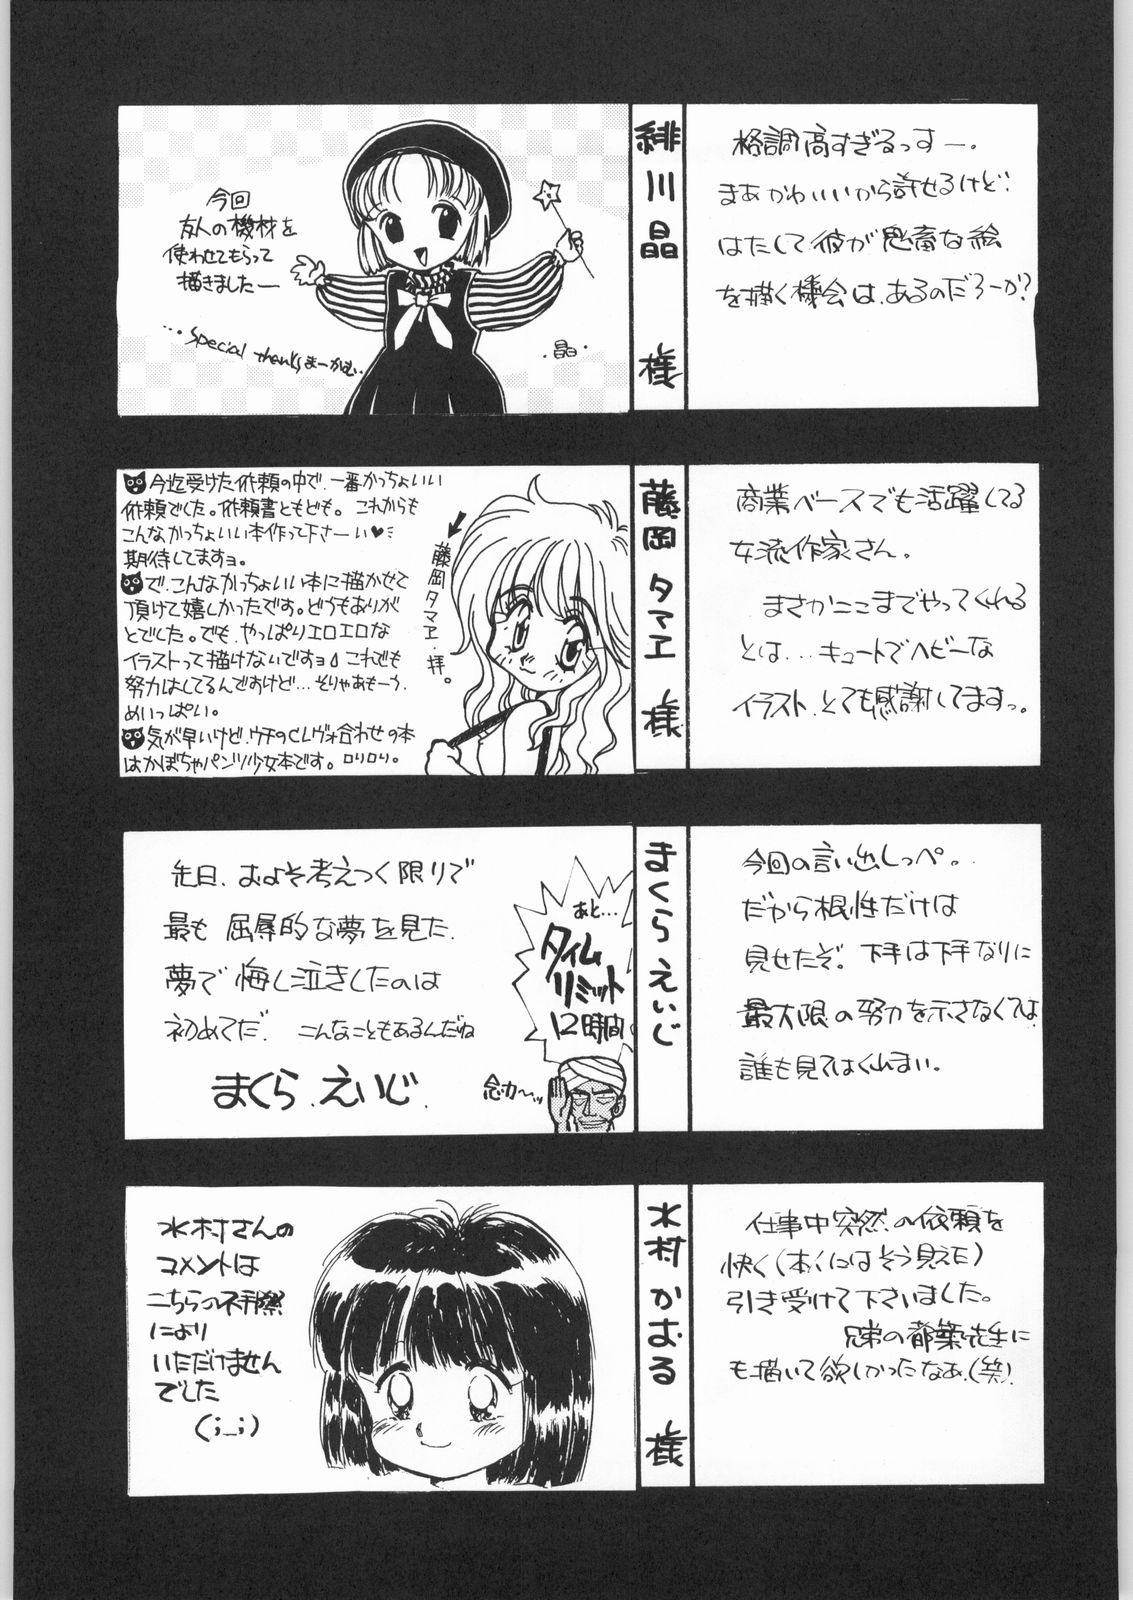 今回
友人の機材を
使わせてもらって
描きましたー
…Special thanksまーかむ…
・晶・
緋川晶 様
格調高すぎるっすー。
まあかわいいから許せるけど…
はたして彼が な絵
を描く機会は、あるのだろーか?
今迄受けた依頼の中で、一番かっちょいい
依頼でした。依頼書ともども。これからも
こんなかっちょいい本作って下さーい♥
期待してますョ。
で、こんなかっちょいい本に描かせて
頂けて嬉しかったです。どうもありが
とでした。でも、やっぱりエロエロな
イラストって描けないですョ これでも
努力はしてるんですけど…そりゃあもーう、
めいっぱい。
気が早いけど、ウチのCレヴォ合わせの本
はかぼちゃパンツ少女本です。ロリロリ。
藤岡タマヱ・拝。
藤岡タマヱ 様
商業ベースでも活躍してる
女流作家さん。
まさかここまでやってくれる
とは...キュートでヘビーな
イラスト、とても感謝してますっ。
先日、およそ考えつく限りで
最も屈辱的な夢を見た。
夢で悔し泣きしたのは
初めてだ。こんなこともあるんだね
まくら.えいじ.
あと…
タイム
リミット
12時間
念力〜ッ
まくらえいじ
今回の言い出しっぺ。
だから根性だけは
見せたぞ。下手は下手なりに
最大限の努力を示さなくては
誰も見てはくれまい。
水村さんの
コメントは
こちらの不手際
により
いただけません
でした
(;_;)
水村かおる 様
仕事中突然の依頼を
快く(本人にはそう見えた)
引き受けて下さいました。
兄弟の都築先生に
も描いて欲しかったなぁ.(笑)